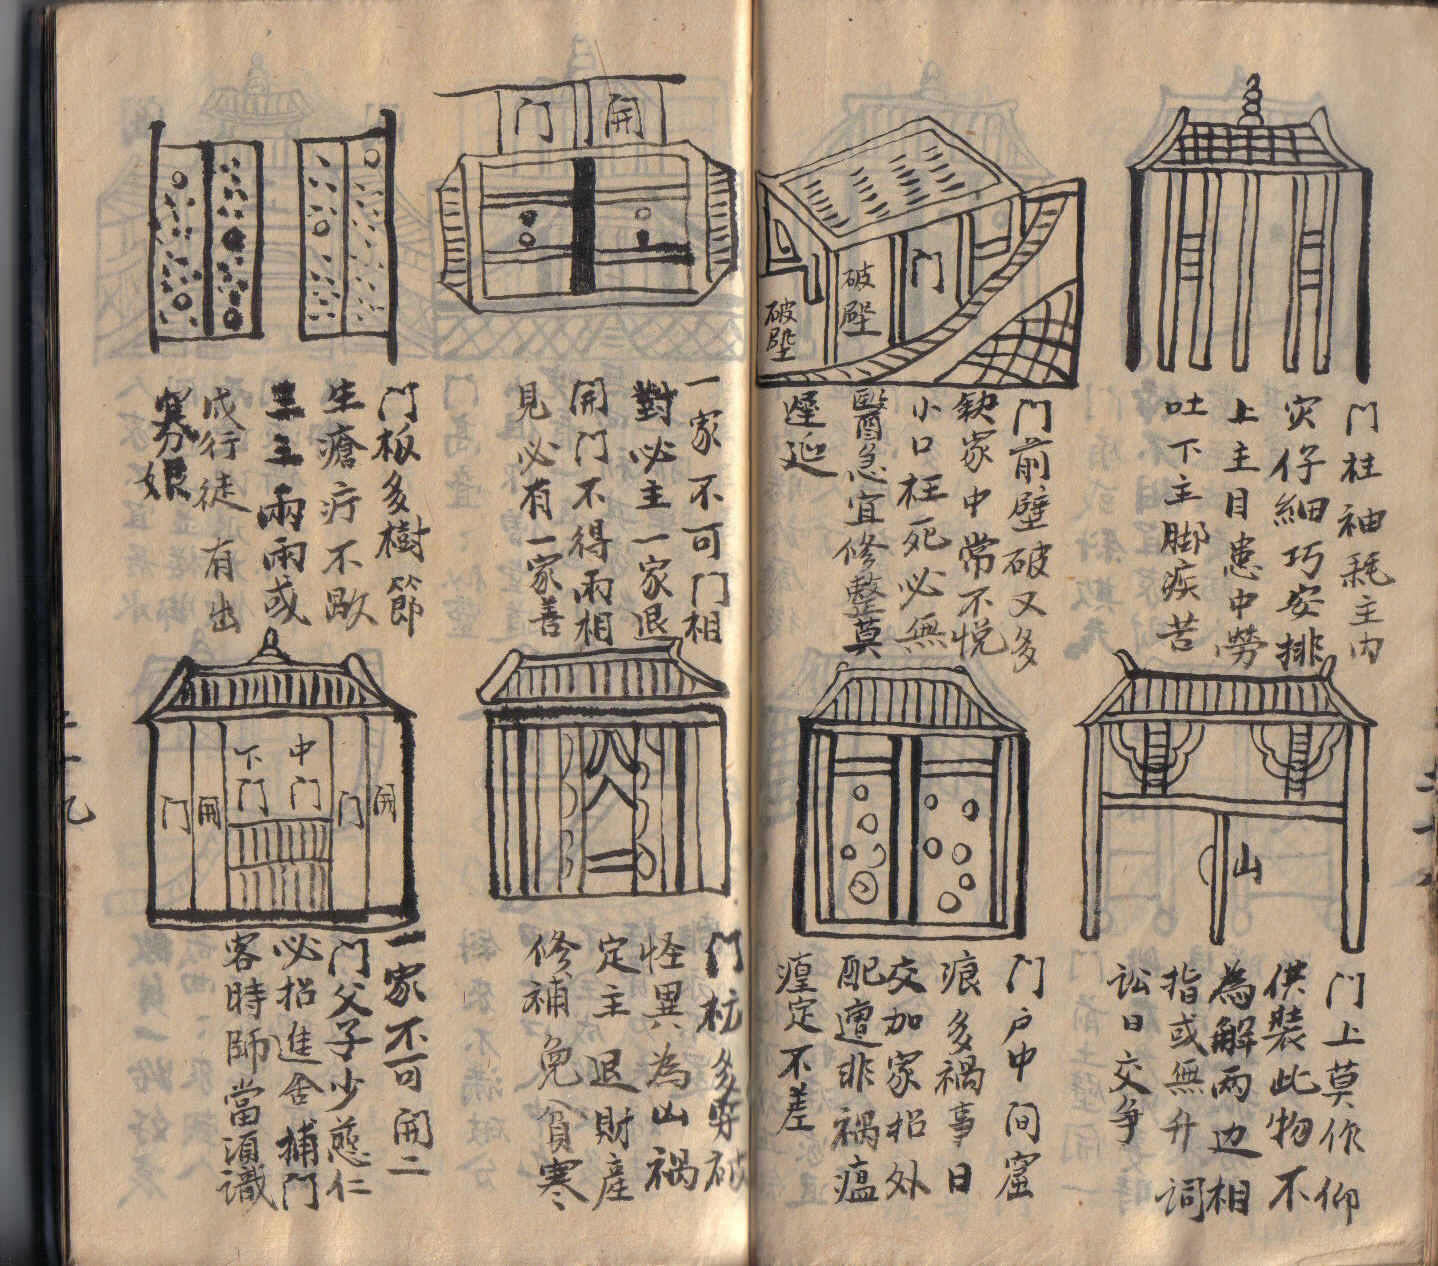 门柱袖耗主内
灾仔細巧安排
上主目患中勞
吐下主脚疾苦
门
破壁
破壁
门前壁破又多
缺家中常不悦
小口枉死必無
醫急宜修整莫
遲延
山
门上莫作仰
供裝此物不
為解兩边相
指或無升詞
訟日交争
门户中间窟
痕多禍事日
交加家招外
配遭非禍瘟
定不差
二十八
開
门
一家不可门相
對必主一家退
開门不得兩相
見必有一家善
门板多樹節
生瘡疔不歇
三三兩兩或
成行徒有出
娘
门多穿破
怪異為山禍
定主退財産
修補免貧寒
開
门
中门
下门
開
门
一家不可開二
门父子少慈仁
必招進舍捕门
客時師當須識
二十九